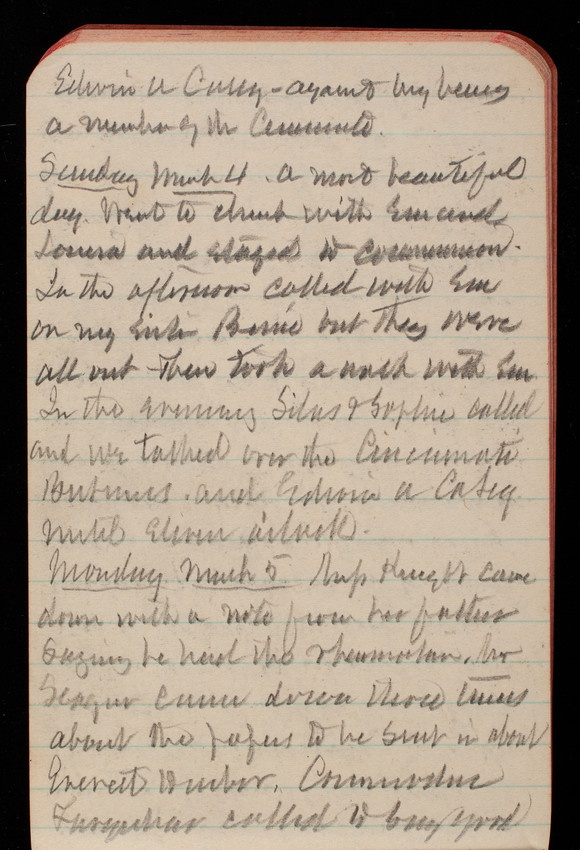 Edwin A Casey - against my being
a member of the Cincinnati.
Sunday March 4. A most beautiful
day. Went to church with Em and
Louisa and stayed to communion.
In the afternoon called with Em
on my sister Bessie but they were
all out - then took a walk with Em
In the evening Silas & Sophie called
and we talked over the Cincinnati
Business. and Edwin A Casey
until Eleven o'clock.
Monday March 5. Miss Knight came
down with a note from her father
saying he had the rheumatism. Mr
came down three times
about the papers to be sent in about
Everett Commodore
Farquhar called to say good